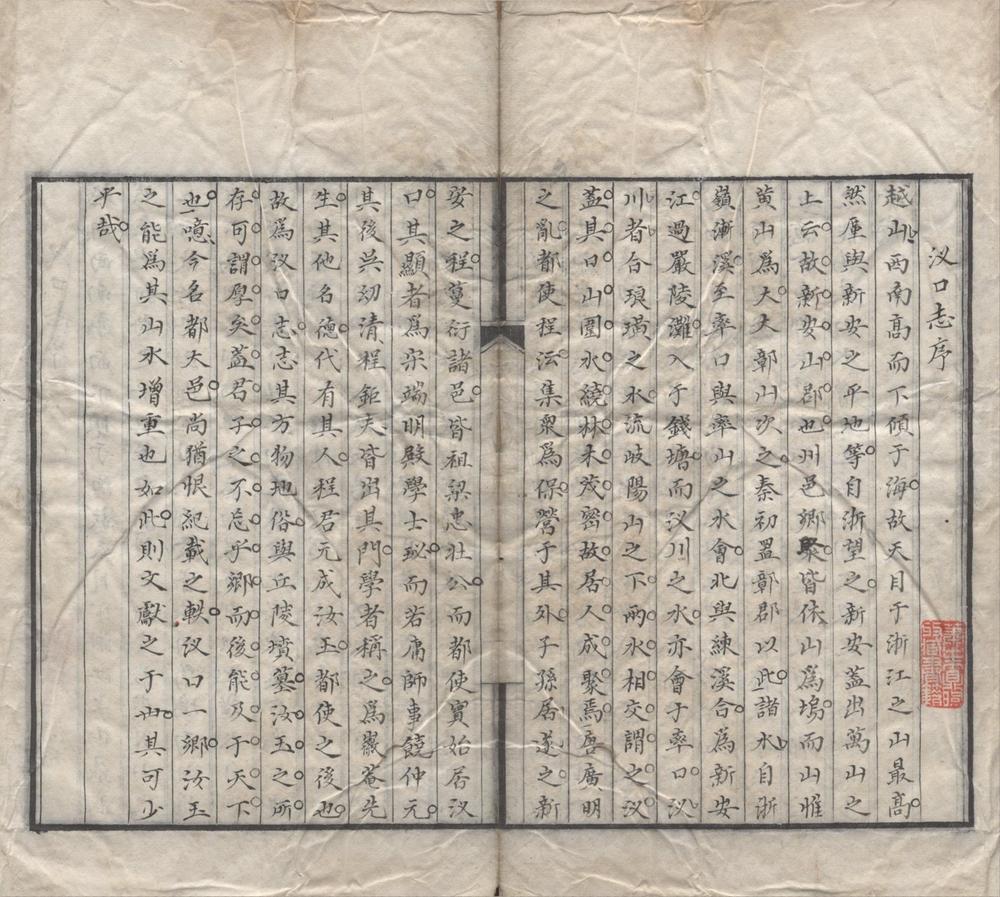 汊口志序
越山西南高而下傾于海故天目于浙江之山最高
然厪與新安之平地等自浙望之新安葢出萬山之
上云故新安山郡也州邑鄉聚皆依山爲塢而山惟
黄山爲大大鄣山次之秦初置鄣郡以此諸水自浙
嶺漸溪至率口與率山之水會北與練溪合爲新安
江過嚴陵灘入于錢塘而汊川之水亦會于率口汊
川者合琅璜之水流岐陽山之下兩水相交謂之汊
葢其口山圍水繞林木茂密故居人成聚焉唐廣明
之亂都使程沄集衆爲保營于其外子孫居遂之新
安之程蔓衍諸邑皆祖梁忠壯公而都使實始居汊
口其顯者爲宋端明殿學士珌而若庸師事饒仲元
其後吴幼清程鉅夫皆出其門學者稱之爲徽菴先
生其他名德代有其人程君元成汝玉都使之後也
故爲汊口志志其方物地俗與丘陵墳墓汝玉之所
存可謂厚矣葢君子之不忘乎鄉而後能及于天下
也噫今名都大邑尚猶恨紀載之軼汊口一鄉汝玉
之能爲其山水增重也如此則文獻之于世其可少
乎哉